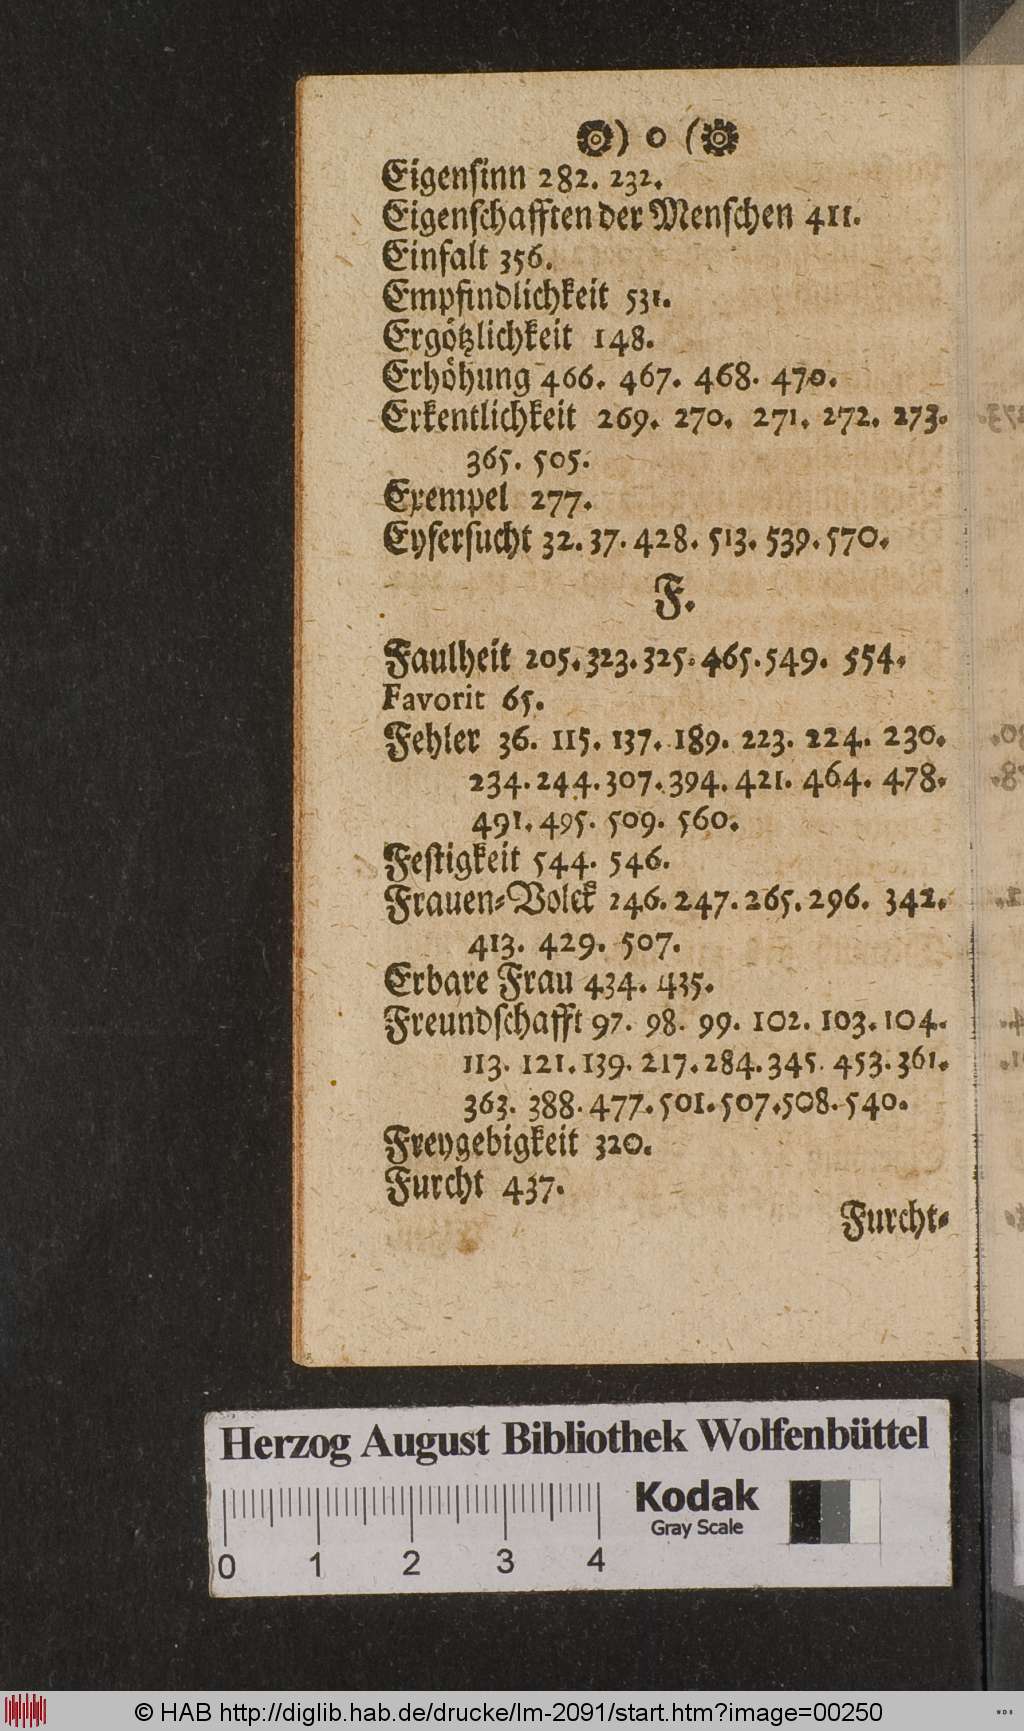 ) o (
Eigensinn 282. 232.
Eigenschafften der Menschen 411.
Einfalt 356.
Empfindlichkeit 531.
Ergötzlichkeit 148.
Erhöhung 466. 467. 468. 470.
Erkentlichkeit 269. 270. 271. 272. 273.
365. 505.
Exempel 277.
Eyfersucht 32. 37. 428. 513. 539. 570.
F.
Faulheit 205. 323. 325. 465. 549. 554.
Favorit 65.
Fehler 36. 115. 137. 189. 223. 224. 230.
234. 244. 307. 394. 421. 464. 478.
491. 495. 509. 560.
Festigkeit 544. 546.
Frauen-Volck 246. 247. 265. 296. 342.
413. 429. 507.
Erbare Frau 434. 435.
Freundschafft 97. 98. 99. 102. 103. 104.
113. 121. 139. 217. 284. 345. 453. 361.
363. 388. 477. 501. 507. 508. 540.
Freygebigkeit 320.
Furcht 437.
Furcht-
Herzog August Bibliothek Wolfenbüttel
Kodak
Gray Scale
0 1 2 3 4
© HAB http://diglib.hab.de/drucke/lm-2091/start.htm?image=00250